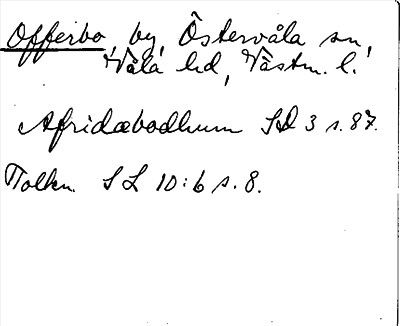 Offerbo, by, Östervåla sn,
Våla hd, Västm. l.
Afridabodhum SD 3 s. 87.
Tolkn. SL 10:6 s. 8.